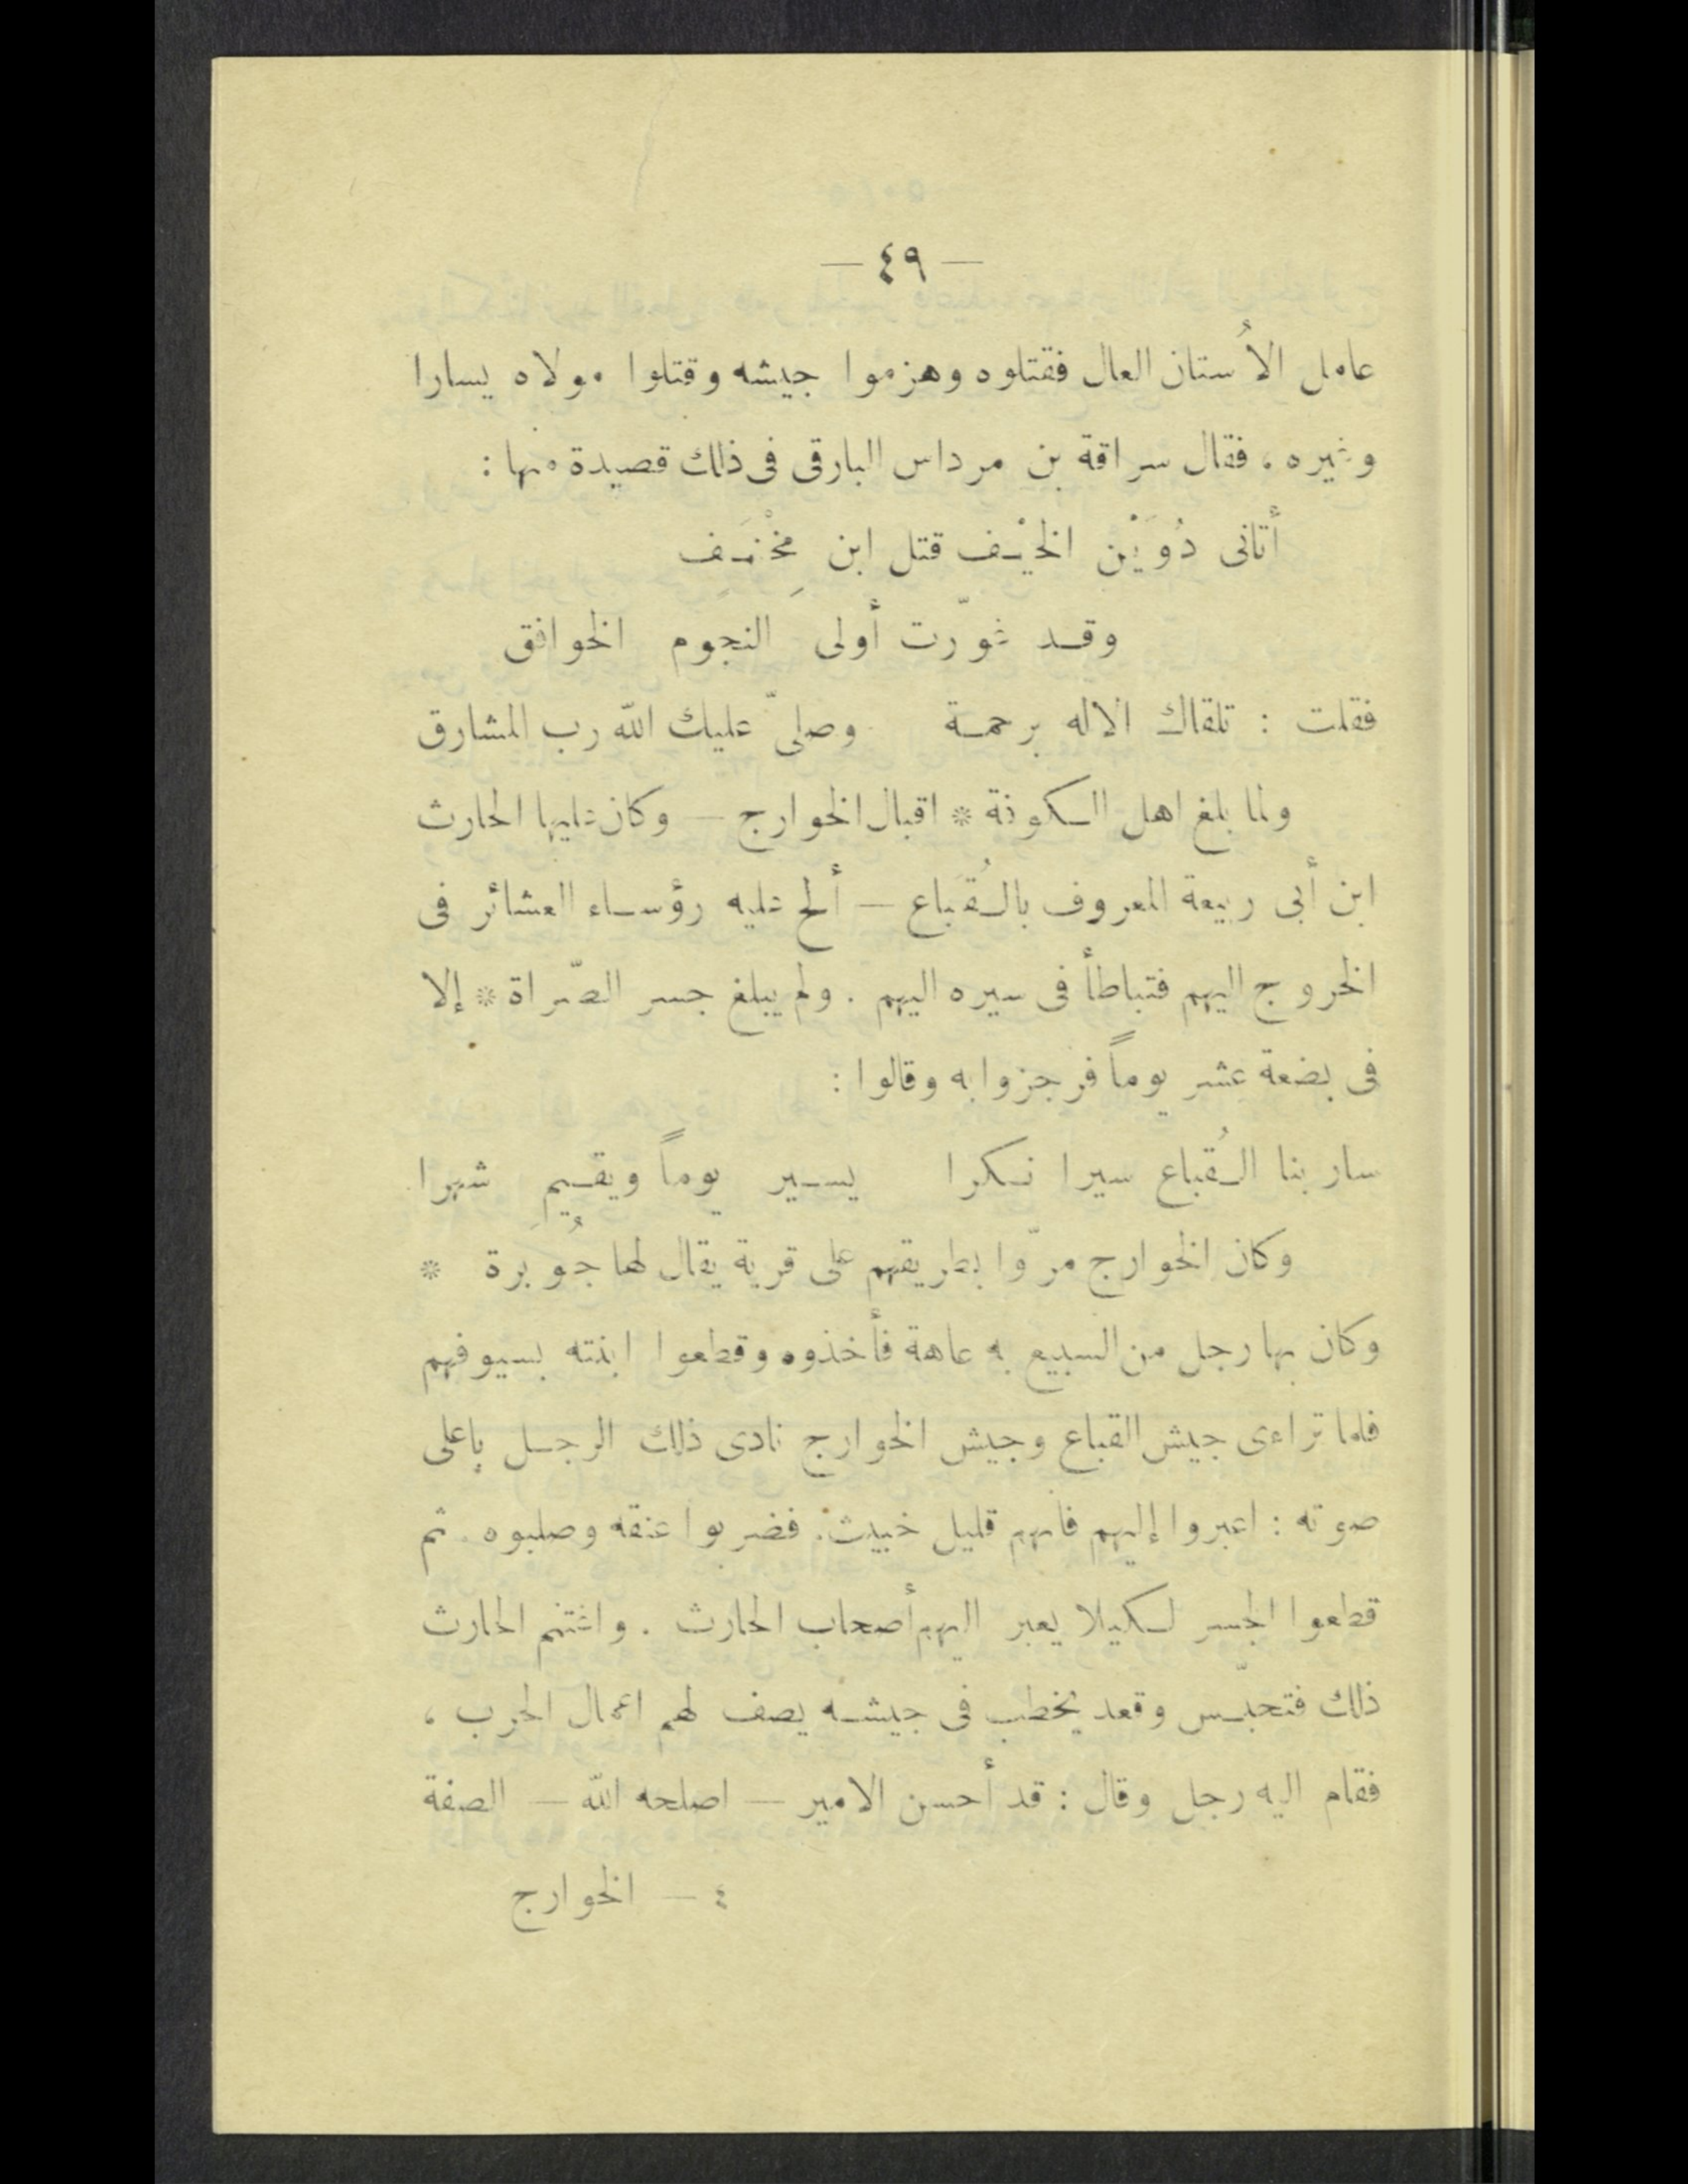 — ٤٩ —
عامل الأُستان العال فقتلوه وهزموا جيشه وقتلوا مولاه يسارا
وغيره ، فقال سراقة بن مرداس البارقى فى ذلك قصيدة منها :
أتانى دُوَيْن الخيْف قتل ابن مِخْنَف
وقد غوّرت أولى النجوم الخوافق
فقلت : تلقاك الاله برحمة وصلىّ عليك الله رب المشارق
ولما بلغ اهل الكوفة * اقبال الخوارج — وكان عليها الحارث
ابن أبى ربيعة المعروف بالقُبَاع — ألح عليه رؤساء العشائر فى
الخروج اليهم فتباطأ فى سيره اليهم . ولم يبلغ جسر الصّراة * إلا
فى بضعة عشر يوماً فرجزوا به وقالوا :
سار بنا القُباع سيرا نكرا يسير يوماً ويقيم شهرا
وكان الخوارج مرّوا بطريقهم على قرية يقال لها جُوبِرة *
وكان بها رجل من السبيع به عاهة فأخذوه وقطعوا ابنته بسيوفهم
فلما تراءى جيش القباع وجيش الخوارج نادى ذلك الرجل باعلى
صوته : اعبروا إليهم فانهم قليل خبيث . فضربوا عنقه وصلبوه . ثم
قطعوا الجسر لكيلا يعبر اليهم أصحاب الحارث . واغتنم الحارث
ذلك فتحبّس وقعد يخطب فى جيشه يصف لهم اعمال الحرب ،
فقام اليه رجل وقال : قد أحسن الامير — اصلحه الله — الصفة
٤ — الخوارج